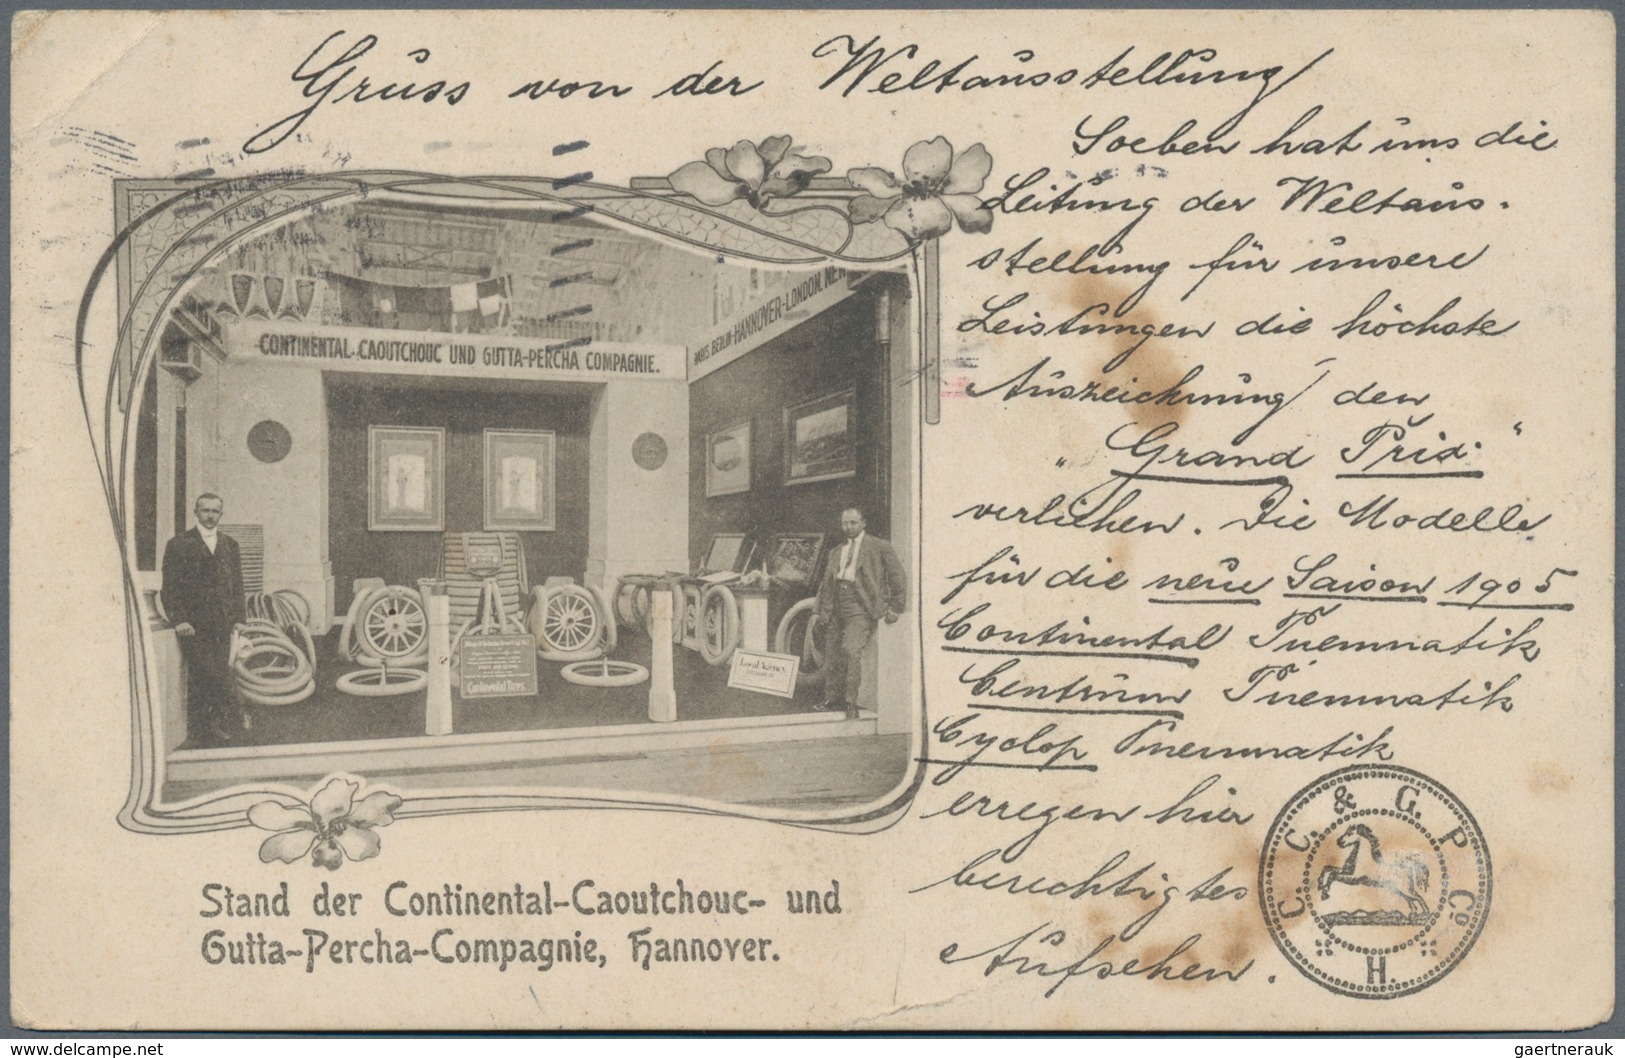 Gruss von der Weltausstellung
Soeben hat uns die
Leitung der Weltaus-
stellung für unsere
Leistungen die höchste
Auszeichnung den
„Grand Prix“
verliehen. Die Modelle
für die neue Saison 1905
Continental Pneumatik
Centrum Pneumatik
Cyclop Pneumatik
erregen hier
berechtigtes
Aufsehen.
CONTINENTAL-CAOUTCHOUC UND GUTTA-PERCHA COMPAGNIE.
PARIS. BERLIN-HANNOVER-LONDON. NEW
Continental Tires
Local Agency
Stand der Continental-Caoutchouc- und
Gutta-Percha-Compagnie, Hannover.
C. C. & G. P. Co. H.
gaertnerauk
www.delcampe.net